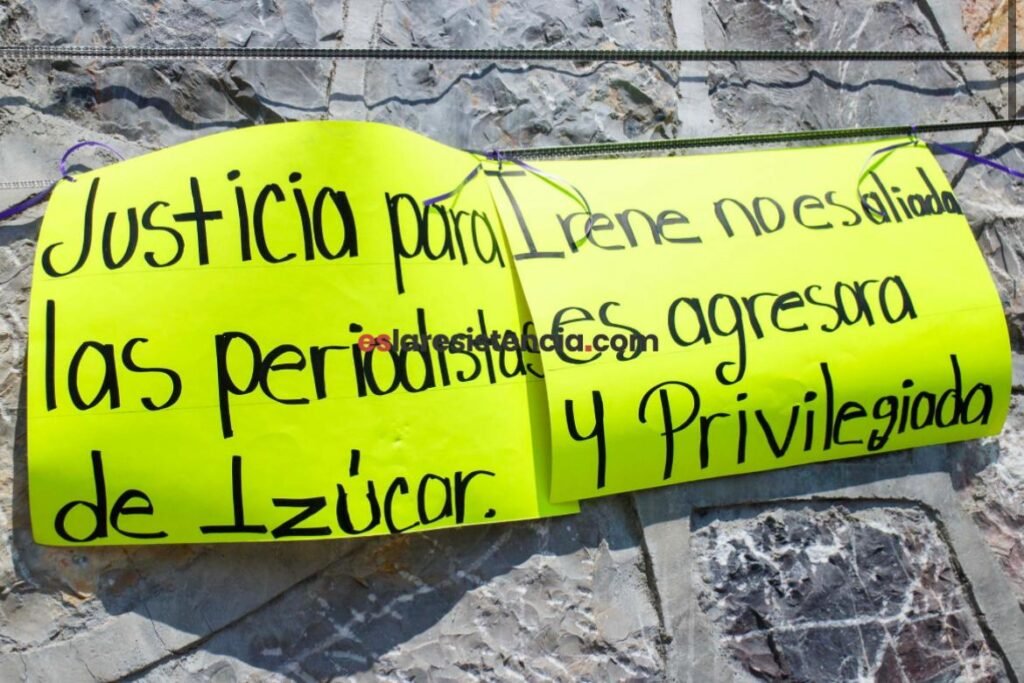 Justicia para
las periodistas
de Izúcar.
Irene no es aliada
es agresora
y Privilegiada
eslaresistencia.com